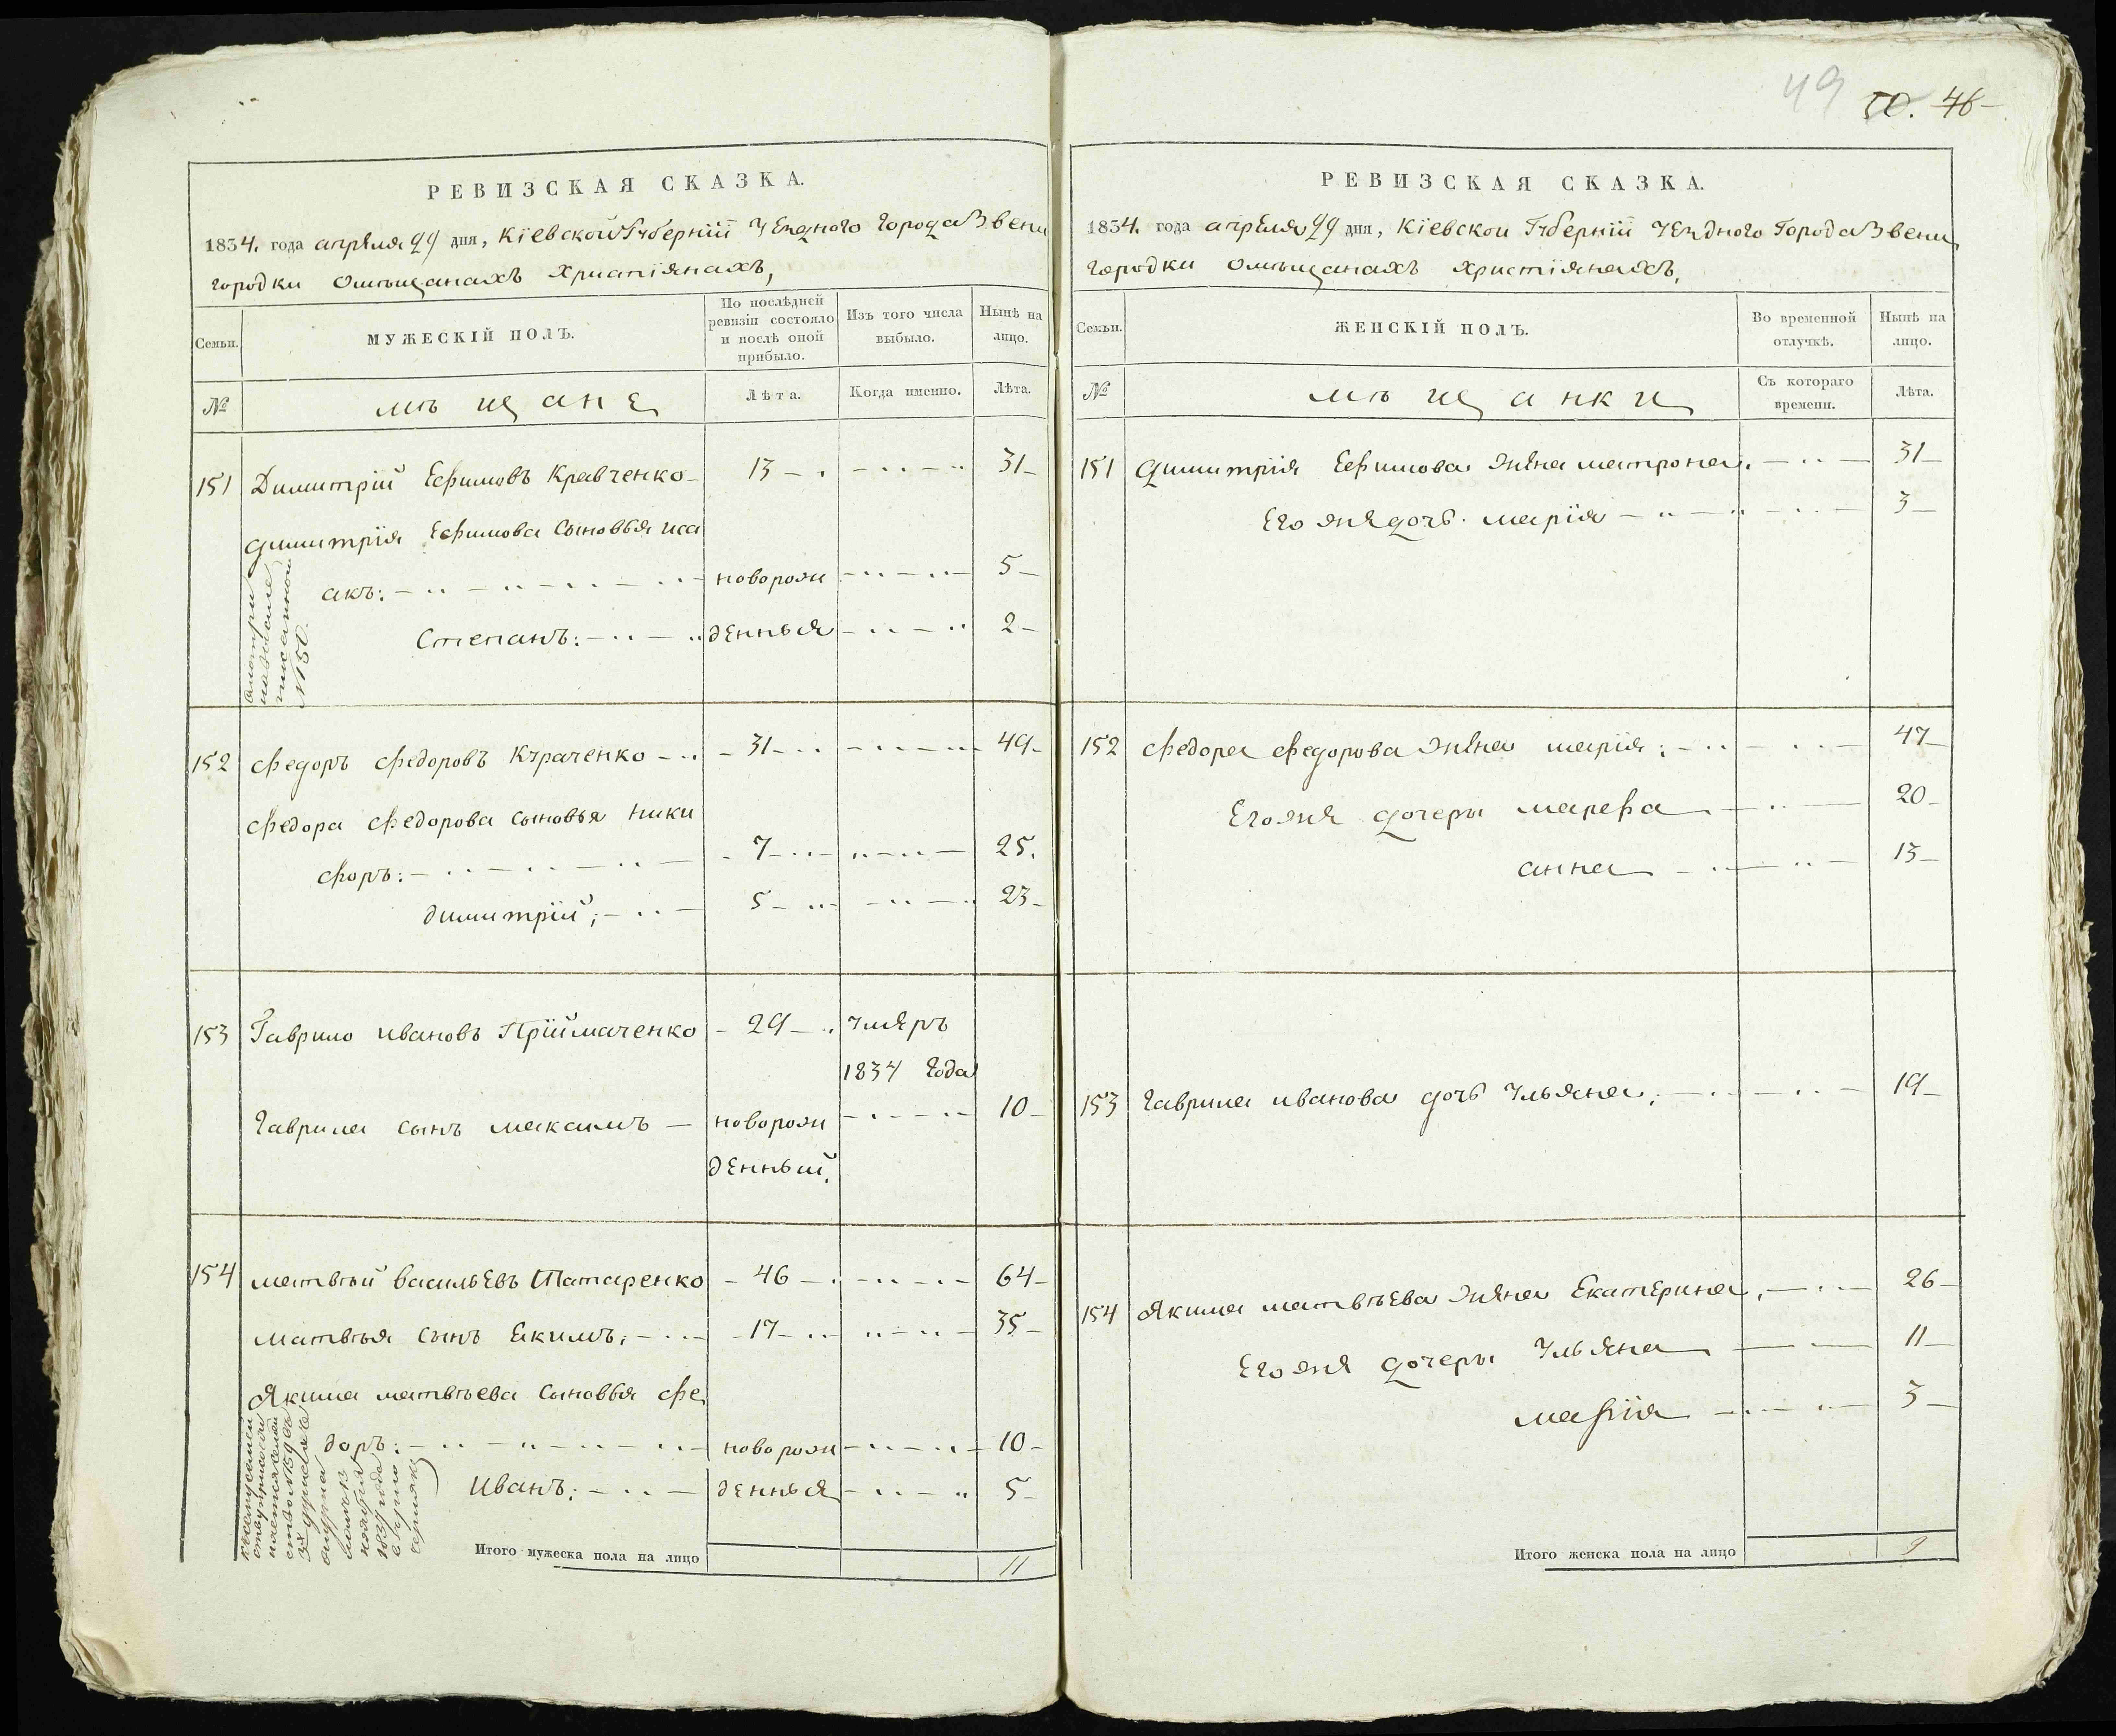 49 50. 46
РЕВИЗСКАЯ СКАЗКА.
1834. года апреля 29 дня, Кіевской Губерніи уезднаго города Звени
городки о мѣщанахъ христіянахъ,
Семьи.
МУЖЕСКІЙ ПОЛЪ.
По послѣдней ревизіи состояло и послѣ оной прибыло.
Изъ того числа выбыло.
Нынѣ на лицо.
№
мѣщане
Лѣта.
Когда именно.
Лѣта.
151 Димитрій Ефимовъ Кравченко 13 31
Димитрія Ефимова сыновья иса
акъ: новорож 5
Степанъ: денныя 2
смотри
№ 150.
152 Федоръ Федоровъ Кураченко 31 49
Федора Федорова сыновья ники
форъ: 7 25.
димитрій; 5 23
153 Гаврило ивановъ Пріймаченко 29 умеръ
1834 года
гаврила сынъ максимъ новорож 10
денный.
154 матвѣй васильевъ Татаренко 46 64
матвѣя сынъ екимъ, 17 35
Якима матвѣева сыновья фе
доръ: новорож 10
Иванъ: денныя 5
Итого мужеска пола на лицо 11
РЕВИЗСКАЯ СКАЗКА.
1834. года апреля 29 дня, Кіевской Губерніи уезднаго Города Звени
городки о мѣщанахъ христіянахъ,
Семьи.
ЖЕНСКІЙ ПОЛЪ.
Во временной отлучкѣ.
Нынѣ на лицо.
№
мѣщанки
Съ котораго времени.
Лѣта.
151 димитрія Ефимова жена матрона. 31
Его же дочь марія 3
152 Федора Федорова жена марія: 47
Его же дочеры марефа 20
анна 13
153 гаврила иванова дочь ульяна, 19
154 Якима матвѣева жена Екатерина, 26
Его же дочеры ульяна 11
марія 3
Итого женска пола на лицо 9